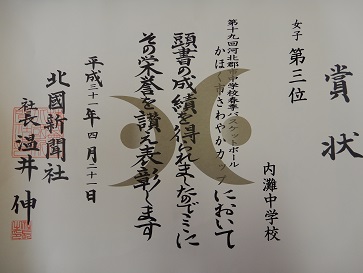 賞状
女子 第三位
内灘中学校
第十九回河北郡市中学校春季バスケットボール
かほく市さわやかカップにおいて
頭書の成績を得られましたのでここに
その栄誉を讃え表彰します
平成三十一年四月二十一日
北國新聞社
社長 温井伸